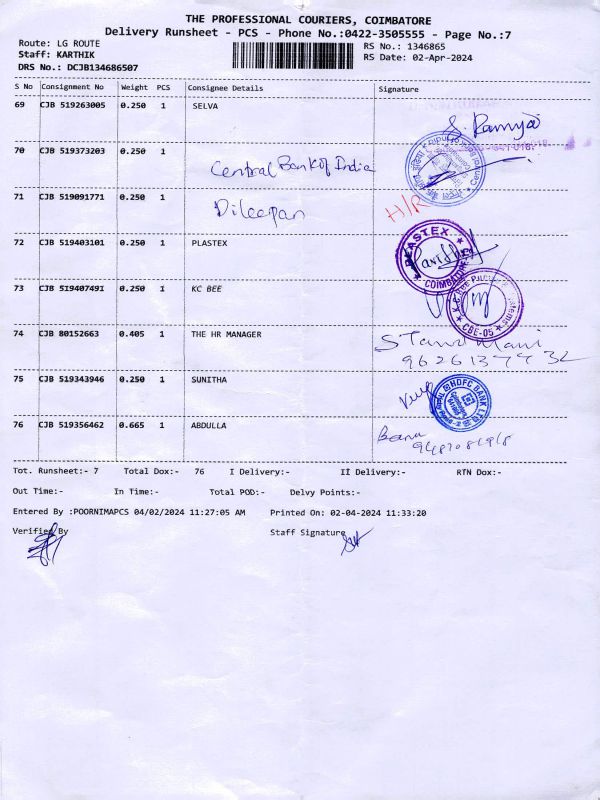 THE PROFESSIONAL COURIERS, COIMBATORE
Delivery Runsheet - PCS - Phone No.:0422-3505555 - Page No.:7
Route: LG ROUTE RS No.: 1346865
Staff: KARTHIK RS Date: 02-Apr-2024
DRS No.: DCJB134686507
S No Consignment No Weight PCS Consignee Details Signature
69 CJB 519263005 0.250 1 SELVA
S. Ramya
70 CJB 519373203 0.250 1 Central Bank of India
71 CJB 519091771 0.250 1 Dileepan H/R
72 CJB 519403101 0.250 1 PLASTEX
PLASTEX COIMBATORE
73 CJB 519407491 0.250 1 KC BEE
CBE-05
74 CJB 80152663 0.405 1 THE HR MANAGER
75 CJB 519343946 0.250 1 SUNITHA
HDFC BANK LTD
76 CJB 519356462 0.665 1 ABDULLA
Tot. Runsheet:- 7 Total Dox:- 76 I Delivery:- II Delivery:- RTN Dox:-
Out Time:- In Time:- Total POD:- Delvy Points:-
Entered By :POORNIMAPCS 04/02/2024 11:27:05 AM Printed On: 02-04-2024 11:33:20
Verified By Staff Signature